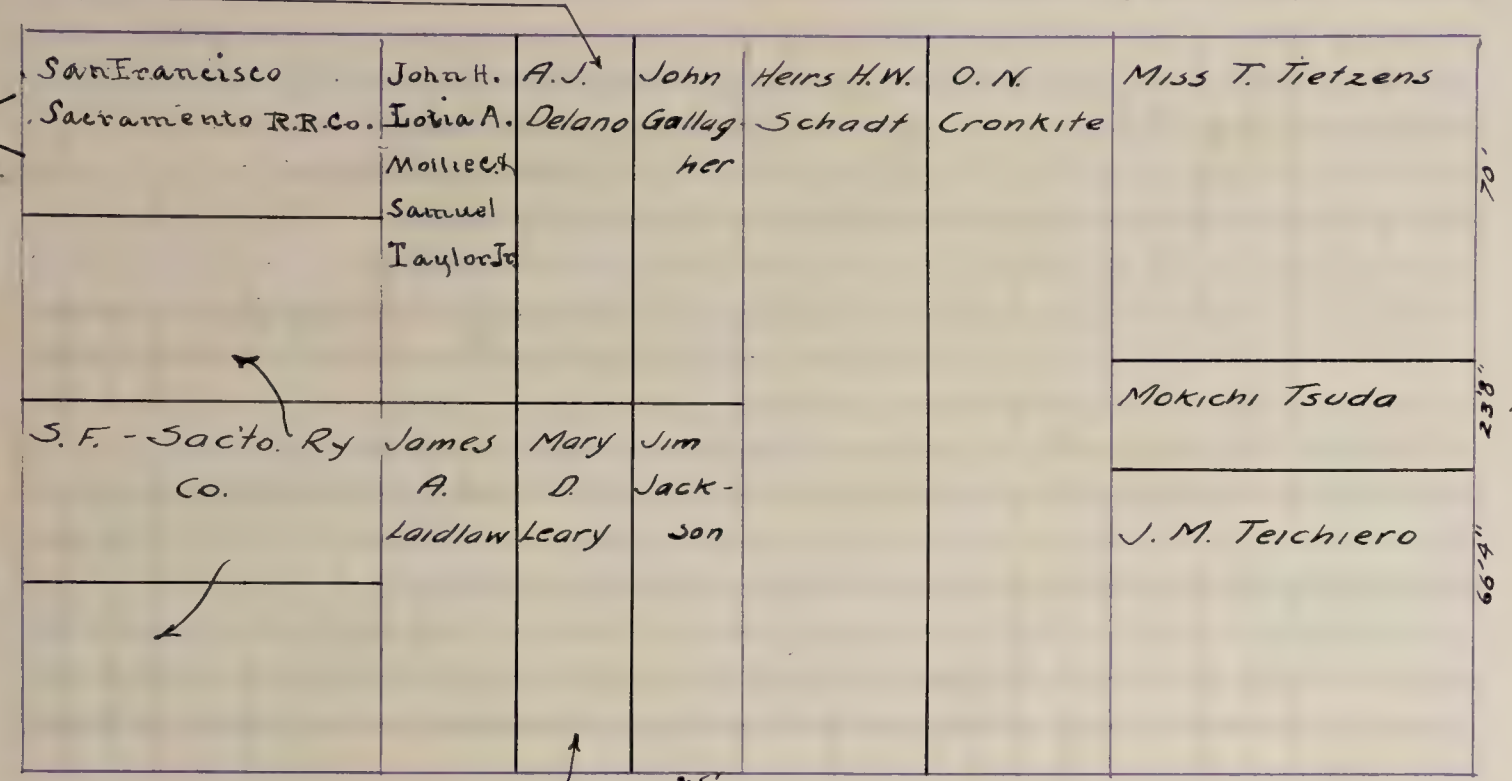 San Francisco
Sacramento R.R.Co.
John H.
Lotia A.
Mollie C.&
Samuel
Taylor Jr
A.J.
Delano
John
Gallag
her
Heirs H.W.
Schadt
O. N.
Cronkite
Miss T. Tietzens
70'
Mokichi Tsuda
23'8"
S. F. - Sac'to. Ry
Co.
James
A.
Laidlaw
Mary
D.
Leary
Jim
Jack-
son
J. M. Teichiero
66'4"